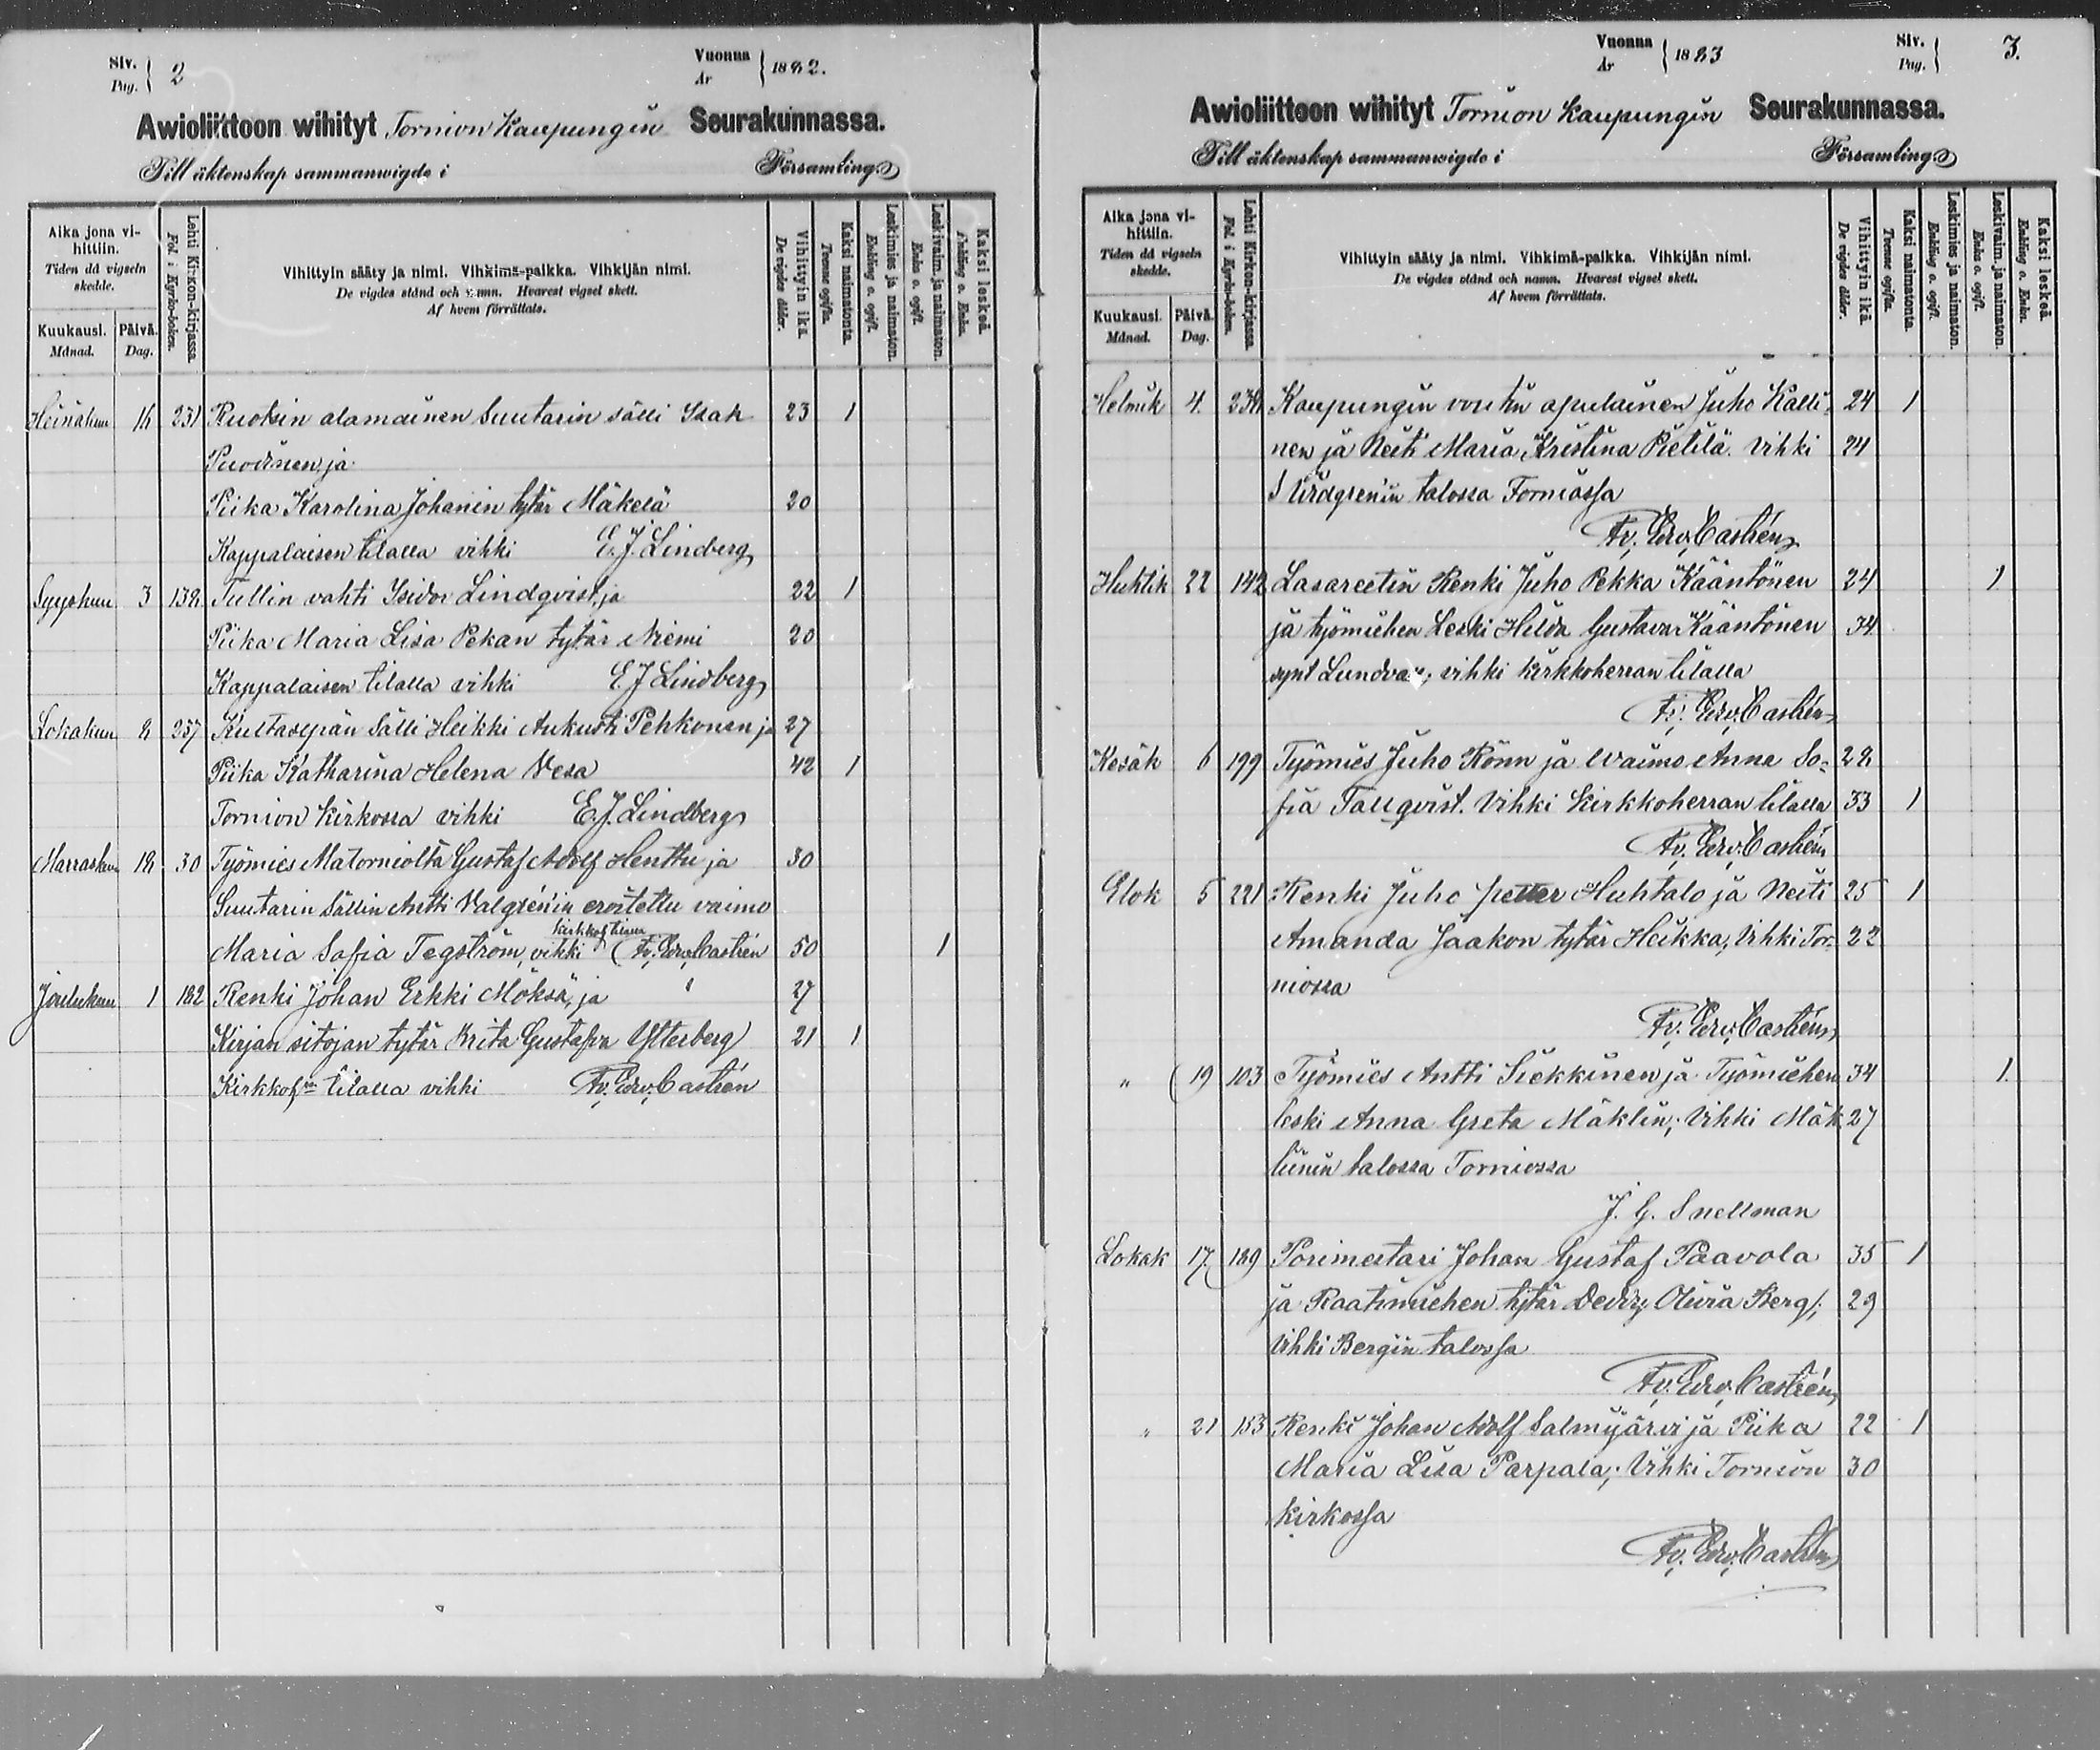 Siv. Pag. 2
Vuonna År 1882.
Awioliittoon wihityt Tornion Kaupungin Seurakunnassa.
Till äktenskap sammanwigde i Församling
Aika jona vihittiin.
Tiden då vigseln skedde.
Kuukausi. Månad.
Päivä. Dag.
Lehti Kirkon-kirjassa.
Fol. i Kyrko-boken.
Vihittyin sääty ja nimi. Vihkimä-paikka. Vihkijän nimi.
De vigdes stånd och namn. Hvarest vigsel skett.
Af hvem förrättats.
Vihittyin ikä.
De vigdes ålder.
Kaksi naimatonta.
Tvenne ogifta.
Leskimies ja naimaton.
Enkling o. ogift.
Leskivaim. ja naimaton.
Enka o. ogift.
Kaksi leskeä.
Enkling o. Enka.
Heinäkuu 16 231 Ruotsin alamainen Suutarin sälli Isak 23 1
Puoinen ja
Piika Karolina Johanin tytär Mäkelä 20
Kappalaisen tilalla vihki E. J. Lindberg
Syyskuu 3 138 Tullin vahti Isidor Lindqvist, ja 22 1
Piika Maria Lisa Pekan tytär Niemi 20
Kappalaisen tilalla vihki E. J Lindberg
Lokakuu 8 257 Kultasepän Sälli Heikki Aukusti Pehkonen ja 27
Piika Katharina Helena Vesa 42 1
Tornion Kirkossa vihki E. J. Lindberg
Marraskuu 18 30 Työmies Matorniolta Gustaf Adolf Henttu ja 30
Suutarin Sällin Antti Valgrén'in eroitettu vaimo
Maria Sofia Tegström, vihki Fr. Edv. Castrén 50 1
Joulukuu 1 182 Renki Johan Erkki Möksä, ja 27
Kirjan sitojan tytär Brita Gustafva Ytterberg 21 1
Kirkkoh:n tilalla vihki Fr. Edv. Castrén
Vuonna År 1883
Siv. Pag. 3.
Awioliittoon wihityt Tornion Kaupungin Seurakunnassa.
Till äktenskap sammanwigde i Församling
Aika jona vihittiin.
Tiden då vigseln skedde.
Kuukausi. Månad.
Päivä. Dag.
Lehti Kirkon-kirjassa.
Fol. i Kyrko-boken.
Vihittyin sääty ja nimi. Vihkimä-paikka. Vihkijän nimi.
De vigdes stånd och namn. Hvarest vigsel skett.
Af hvem förrättats.
Vihittyin ikä.
De vigdes ålder.
Kaksi naimatonta.
Tvenne ogifta.
Leskimies ja naimaton.
Enkling o. ogift.
Leskivaim. ja naimaton.
Enka o. ogift.
Kaksi leskeä.
Enkling o. Enka.
Helmik 4. Kaupungin voutin apulainen Juho Kalli- 24 1
nen ja Neiti Maria Kristina Pietilä. Vihki 24
talossa Torniossa
Fr. Edv. Castrén
Huhtik 22 142 Lasareetin Renki Juho Pekka Kääntönen 24 1
ja työmiehen Leski Hilda Gustava Kääntönen 34
synt vihki kirkkoherran tilalla
Fr. Edv. Castrén
Kesäk 6 199 Työmies Juho Rönn ja waimo Anna So- 28
fia Tallqvist. Vihki Kirkkoherran tilalla 33 1
Fr. Edv. Castrén
Elok 5 221 Renki Juho petter Huhtalo ja Neiti 25 1
Amanda Jaakon tytär Heikka; Vihki Tor- 22
niossa
Fr. Edv. Castrén
" 19 103 Työmies Antti Siekkinen ja Työmiehen 34 1.
leski Anna Greta Mäklin; Vihki Mäk 27
linin talossa Torniossa
J. G. Snellman
Lokak 17. 189 Porimestari Johan Gustaf Paavola 35 1
ja Raatimiehen tytär Olivia Berg; 29
Vihki Bergin talossa
Fr. Edv. Castrén
" 21 153 Renki Johan Adolf Salmijärvi ja Piika 22 1
Maria Lisa Parpala; Vihki Tornion 30
kirkossa
Fr. Edv. Castrén